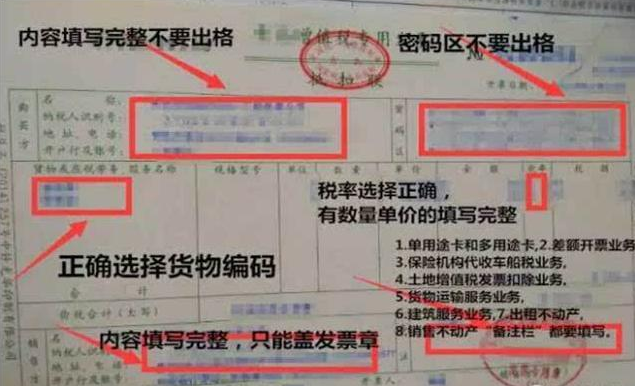 增值税专用
内容填写完整不要出格
密码区不要出格
抵扣联
开票日期:
购买方
名 称:
纳税人识别号:
地址、电话:
开户行及账号:
密码区
货物或应税劳务、服务名称
规格型号
单位
数量
单价
金额
税率
税额
税率选择正确,
有数量单价的填写完整
1.单用途卡和多用途卡,2.差额开票业务,
3.保险机构代收车船税业务,
4.土地增值税发票扣除业务,
5.货物运输服务业务,
6.建筑服务业务,7.出租不动产,
8.销售不动产“备注栏”都要填写。
正确选择货物编码
合 计
价税合计(大写)
内容填写完整,只能盖发票章